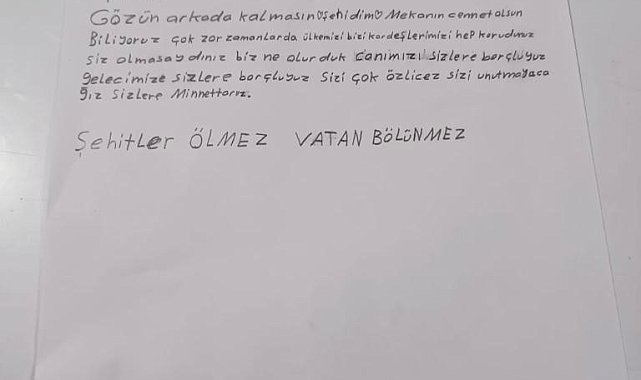 Gözün arkada kalmasın♡şehidim♡ Mekanın cennet olsun
Biliyoruz çok zor zamanlarda ülkemizi bizi kardeşlerimizi hep korudunuz
siz olmasaydınız biz ne olurduk canımızı sizlere borçluyuz
gelecimize sizlere borçluyuz sizi çok özlicez sizi unutmayaca
ğız sizlere Minnettarız.
Şehitler ÖLMEZ VATAN BÖLÜNMEZ